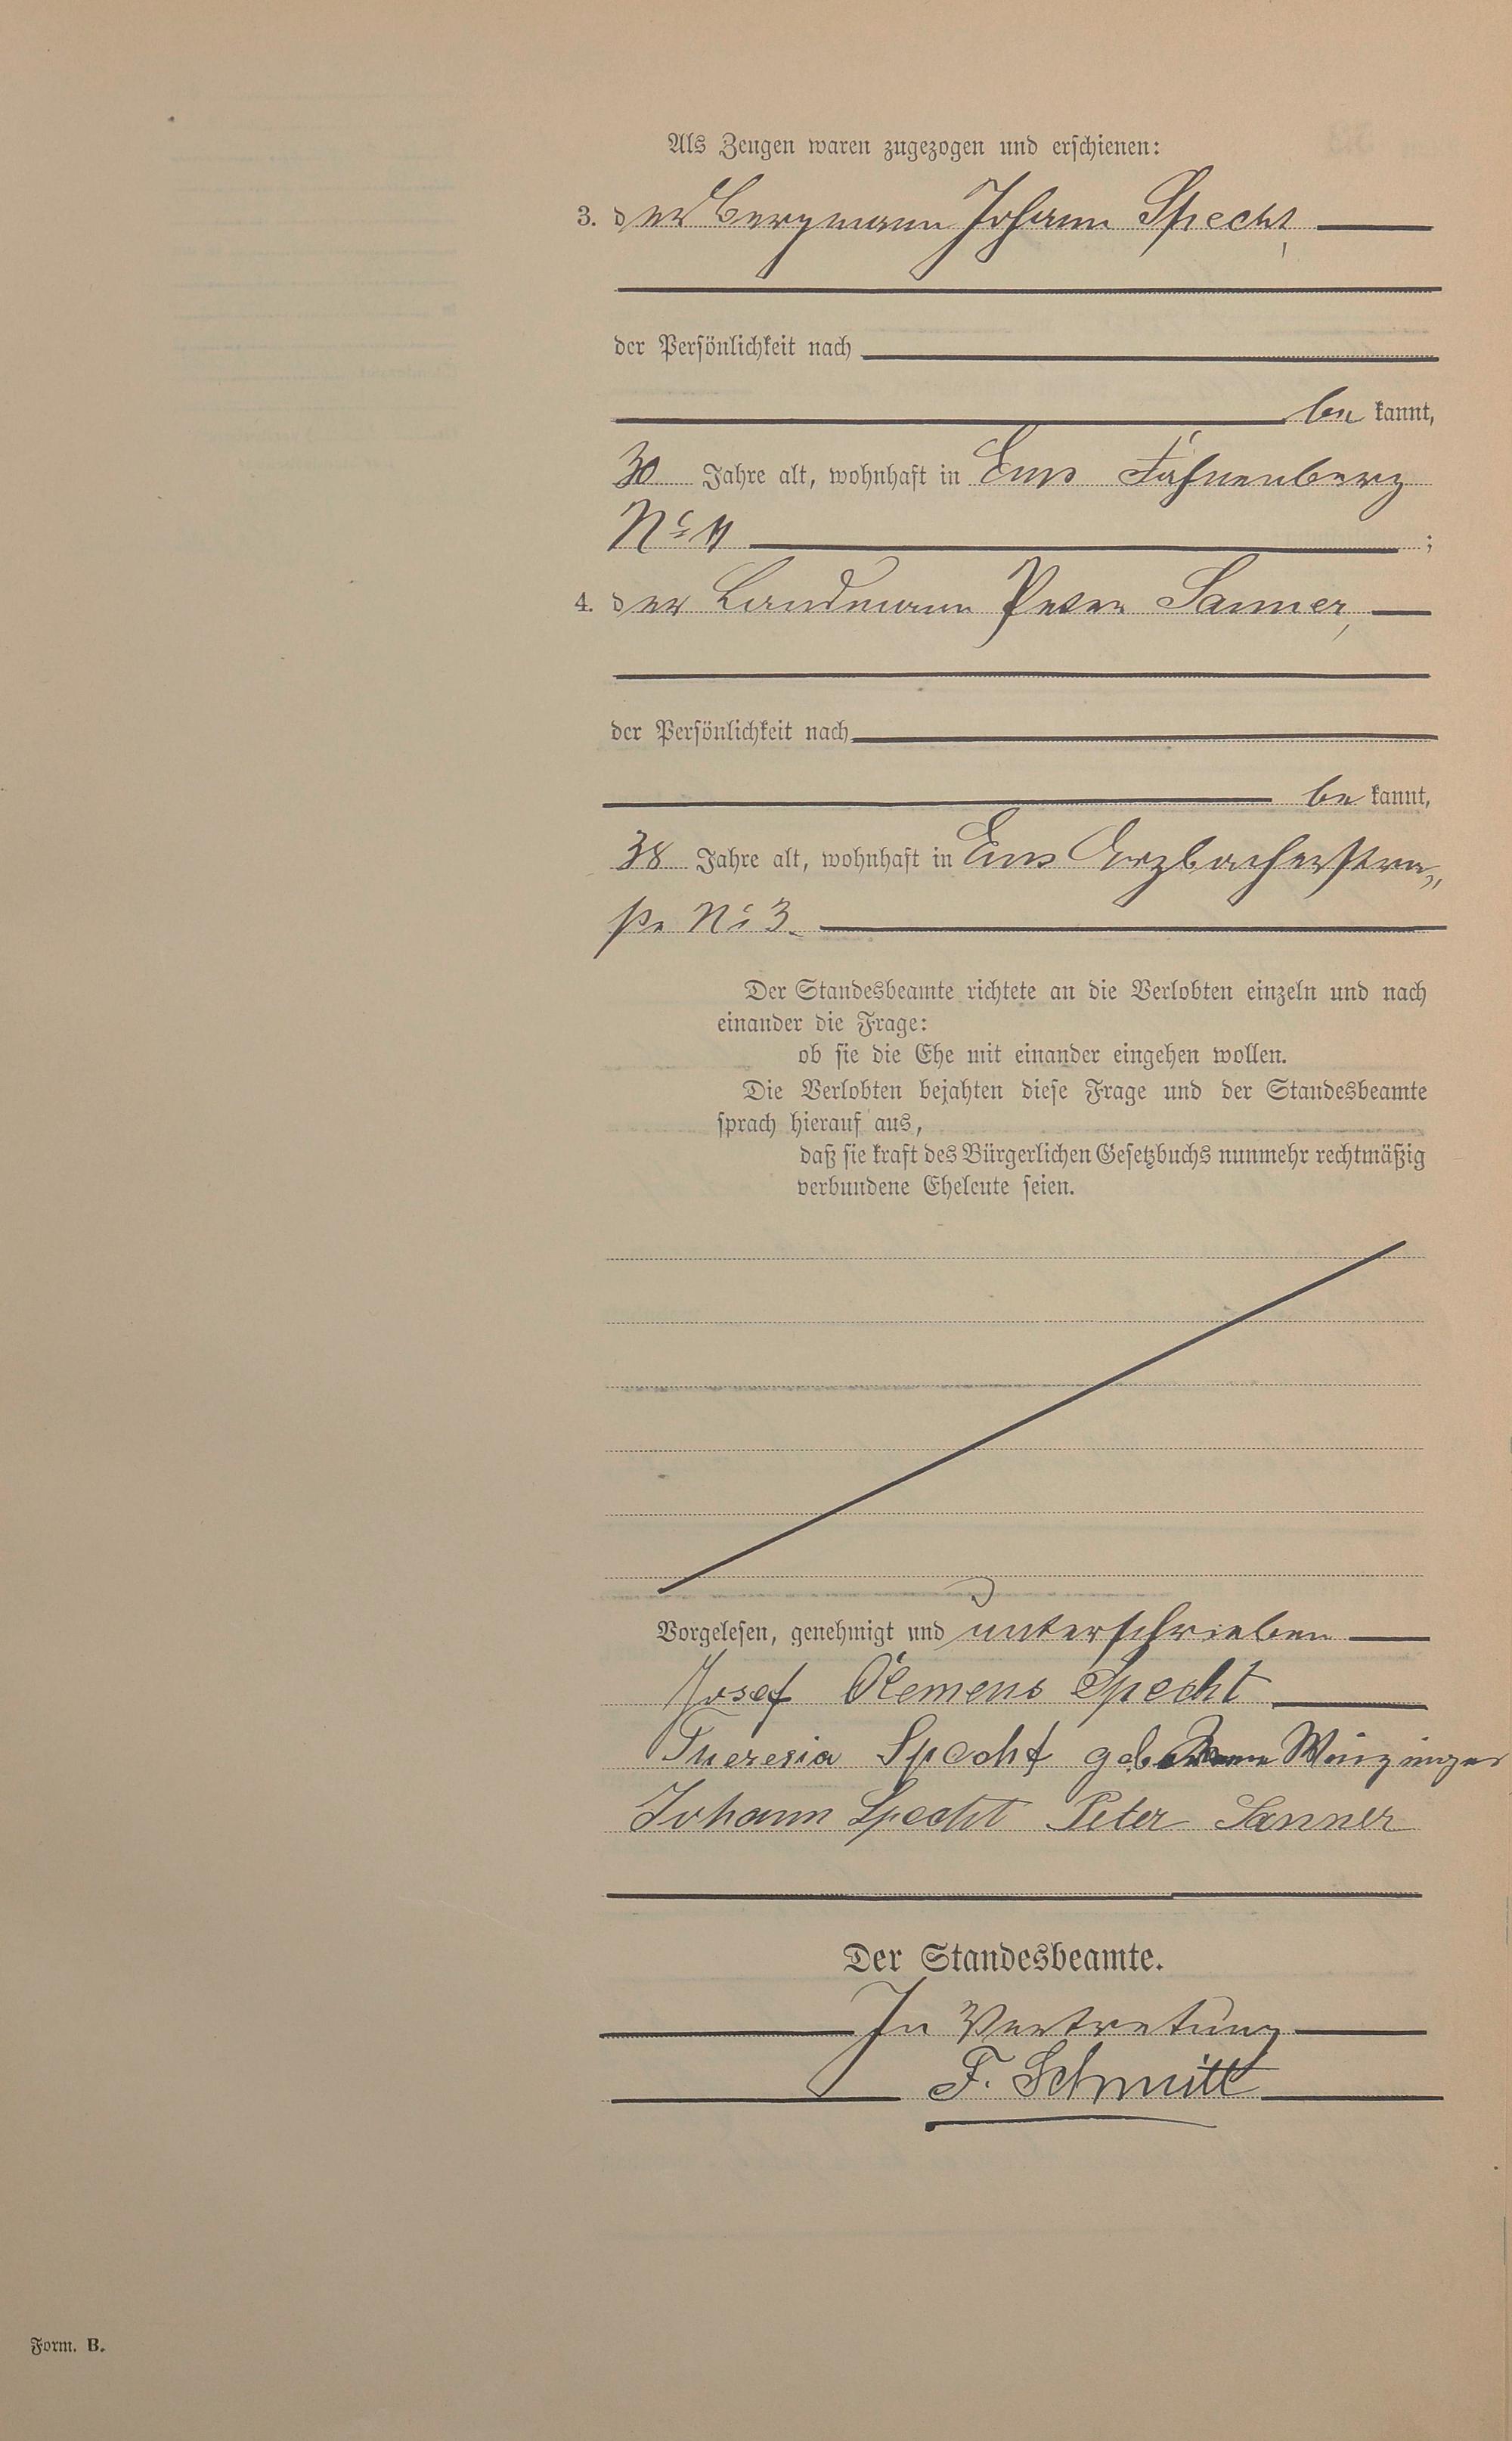 Als Zeugen waren zugezogen und erschienen:
3. der Bergmann Johann Specht,
der Persönlichkeit nach
be kannt,
30 Jahre alt, wohnhaft in Ems Fahnenberg
No 11 ;
4. der Landmann Peter Sanner,
der Persönlichkeit nach
be kannt,
38 Jahre alt, wohnhaft in Ems Arzbacherstra-
ße No 3.
Der Standesbeamte richtete an die Verlobten einzeln und nach
einander die Frage:
ob sie die Ehe mit einander eingehen wollen.
Die Verlobten bejahten diese Frage und der Standesbeamte
sprach hierauf aus,
daß sie kraft des Bürgerlichen Gesetzbuchs nunmehr rechtmäßig
verbundene Eheleute seien.
Vorgelesen, genehmigt und unterschrieben
Josef Klemens Specht
Theresia Specht geborene Winzinger
Johann Specht Peter Sanner
Der Standesbeamte.
In Vertretung
F. Schmitt
Form. B.